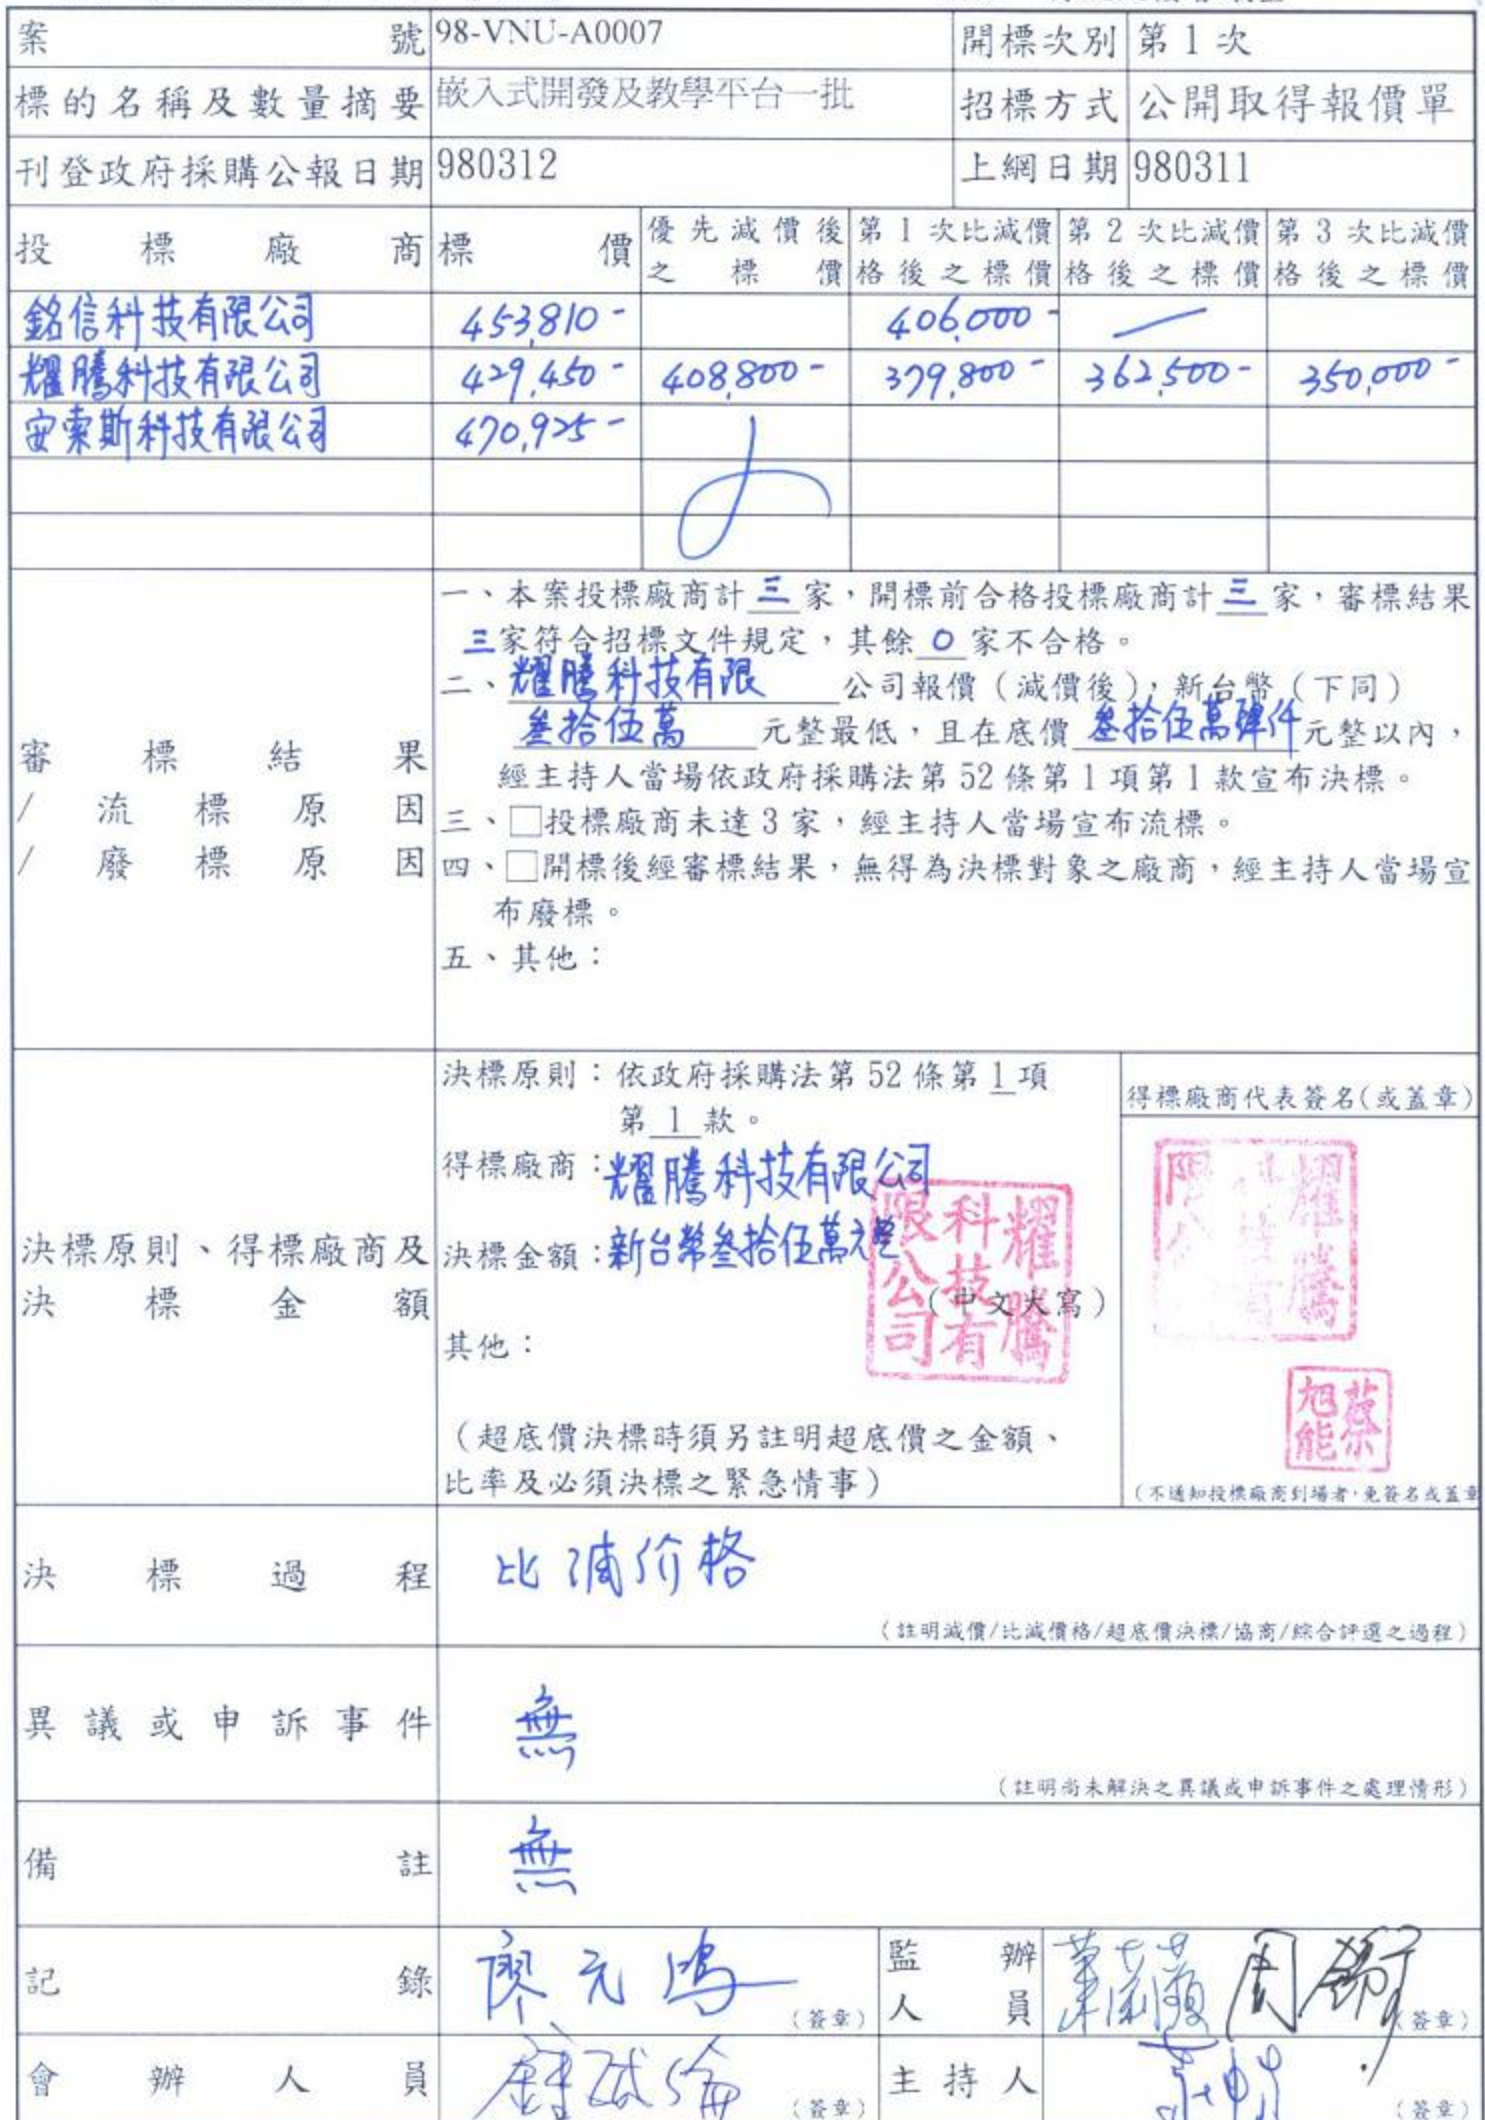 案號 98-VNU-A0007 開標次別 第1次
標的名稱及數量摘要 嵌入式開發及教學平台一批 招標方式 公開取得報價單
刊登政府採購公報日期 980312 上網日期 980311
投標廠商 標價 優先減價後之標價 第1次比減價格後之標價 第2次比減價格後之標價 第3次比減價格後之標價
銘信科技有限公司 453,810- 406,000-
耀騰科技有限公司 429,450- 408,800- 379,800- 362,500- 350,000-
安索斯科技有限公司 470,925-
審標結果
/流標原因
/廢標原因
一、本案投標廠商計三家,開標前合格投標廠商計三家,審標結果
三家符合招標文件規定,其餘0家不合格。
二、耀騰科技有限公司報價(減價後),新台幣(下同)
叁拾伍萬元整最低,且在底價叁拾伍萬肆仟元整以內,
經主持人當場依政府採購法第52條第1項第1款宣布決標。
三、□投標廠商未達3家,經主持人當場宣布流標。
四、□開標後經審標結果,無得為決標對象之廠商,經主持人當場宣
布廢標。
五、其他:
決標原則、得標廠商及
決標金額
決標原則:依政府採購法第52條第1項
第1款。
得標廠商:耀騰科技有限公司
決標金額:新台幣叁拾伍萬元整
(中文大寫)
其他:
(超底價決標時須另註明超底價之金額、
比率及必須決標之緊急情事)
耀騰科技有限公司
得標廠商代表簽名(或蓋章)
耀騰科技有限公司
蔡旭能
(不通知投標廠商到場者,免簽名或蓋章
決標過程 比減价格
(註明減價/比減價格/超底價決標/協商/綜合評選之過程)
異議或申訴事件 無
(註明尚未解決之異議或申訴事件之處理情形)
備註 無
記錄 廖元鴻 (簽章) 監辦人員 (簽章)
會辦人員 (簽章) 主持人 (簽章)